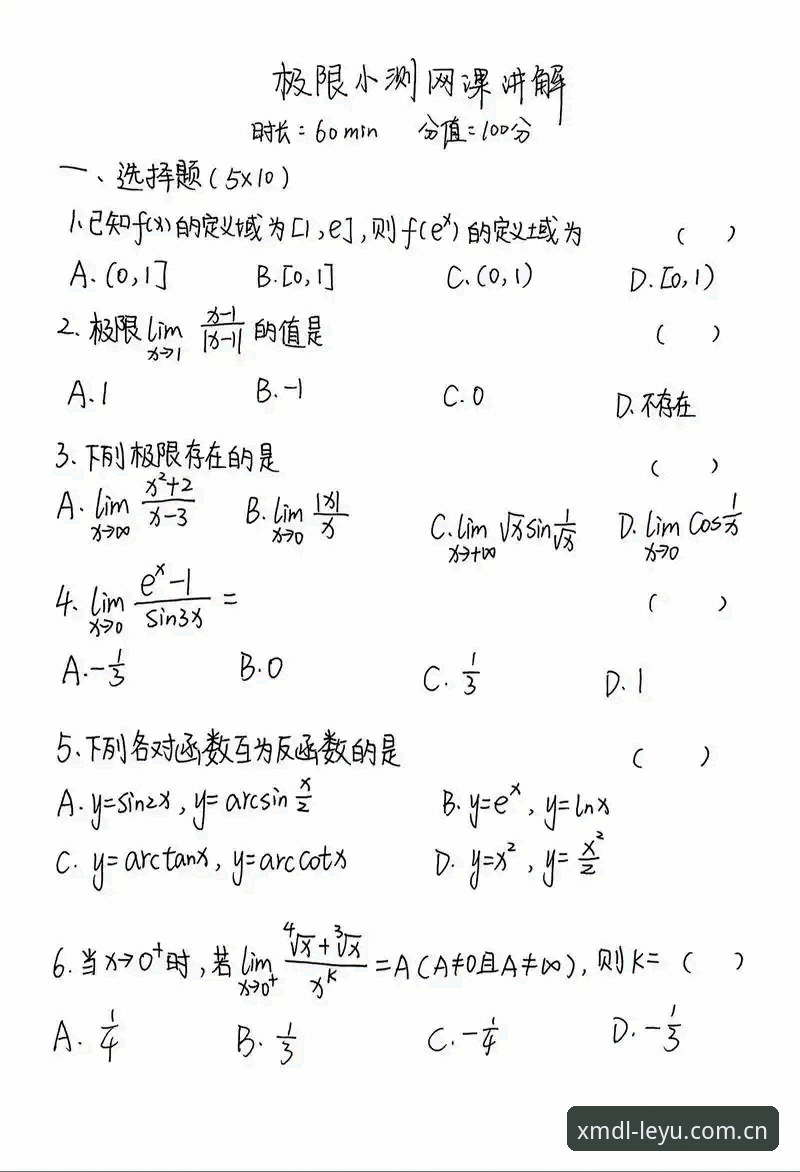 极限小测网课讲解
时长：60min 分值=100分
一、选择题(5×10)
1.已知f(x)的定义域为[1,e],则f(eˣ)的定义域为 ( )
A.(0,1] B.[0,1] C.(0,1) D.[0,1)
2.极限lim x→1 (x-1)/|x-1| 的值是 ( )
A.1 B.-1 C.0 D.不存在
3.下列极限存在的是 ( )
A.lim x→∞ (x²+2)/(x-3) B.lim x→0 |x|/x C.lim x→+∞ √x sin 1/√x D.lim x→0 Cos 1/x
4.lim x→0 (eˣ-1)/sin3x = ( )
A.-1/3 B.0 C.1/3 D.1
5.下列各对函数互为反函数的是 ( )
A.y=sin2x,y=arcsin x/2 B.y=eˣ,y=lnx
C.y=arctanx,y=arccotx D.y=x²,y=x²/2
6.当x→0⁺时,若lim x→0⁺ (∜x+∛x)/xᴷ =A(A≠0且A≠∞),则K= ( )
A.1/4 B.1/3 C.-1/4 D.-1/3
xmdl-leyu.com.cn